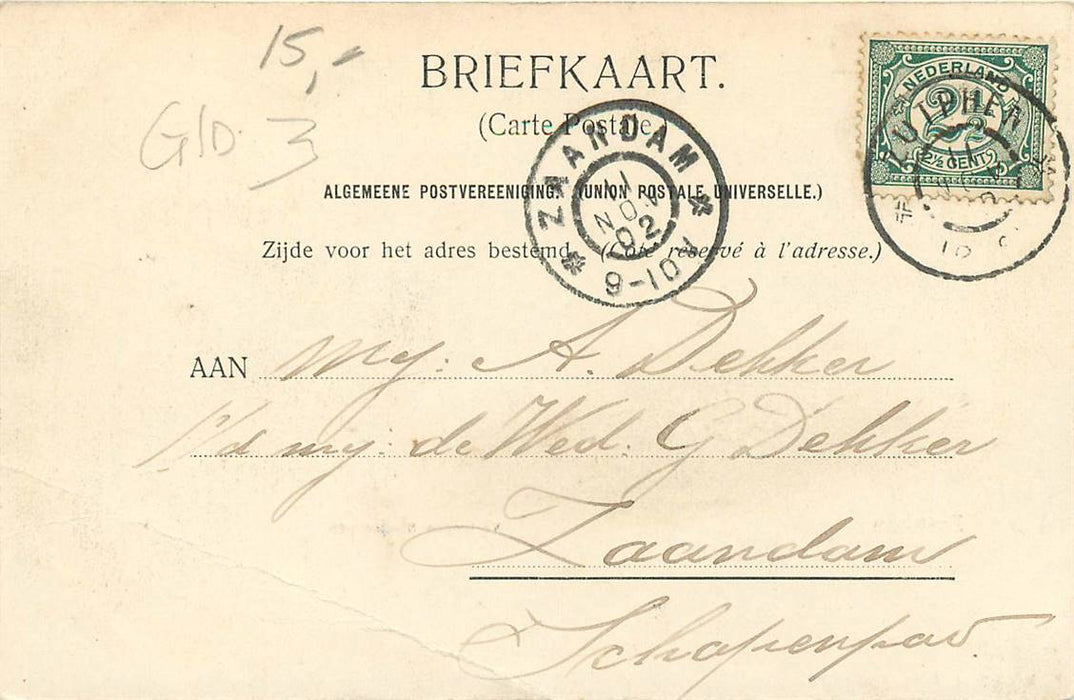 15,-
Gld. 3
BRIEFKAART.
(Carte Postale.)
ALGEMEENE POSTVEREENIGING. (UNION POSTALE UNIVERSELLE.)
Zijde voor het adres bestemd. (Côté réservé à l'adresse.)
NEDERLAND
2½
2½ CENT
ZUTPHEN
11
ZAANDAM
11
NOV
02
9-10V
AAN Mej: A. Dekker
p/a mej: de Wed. G Dekker
Zaandam
Schapenpad.